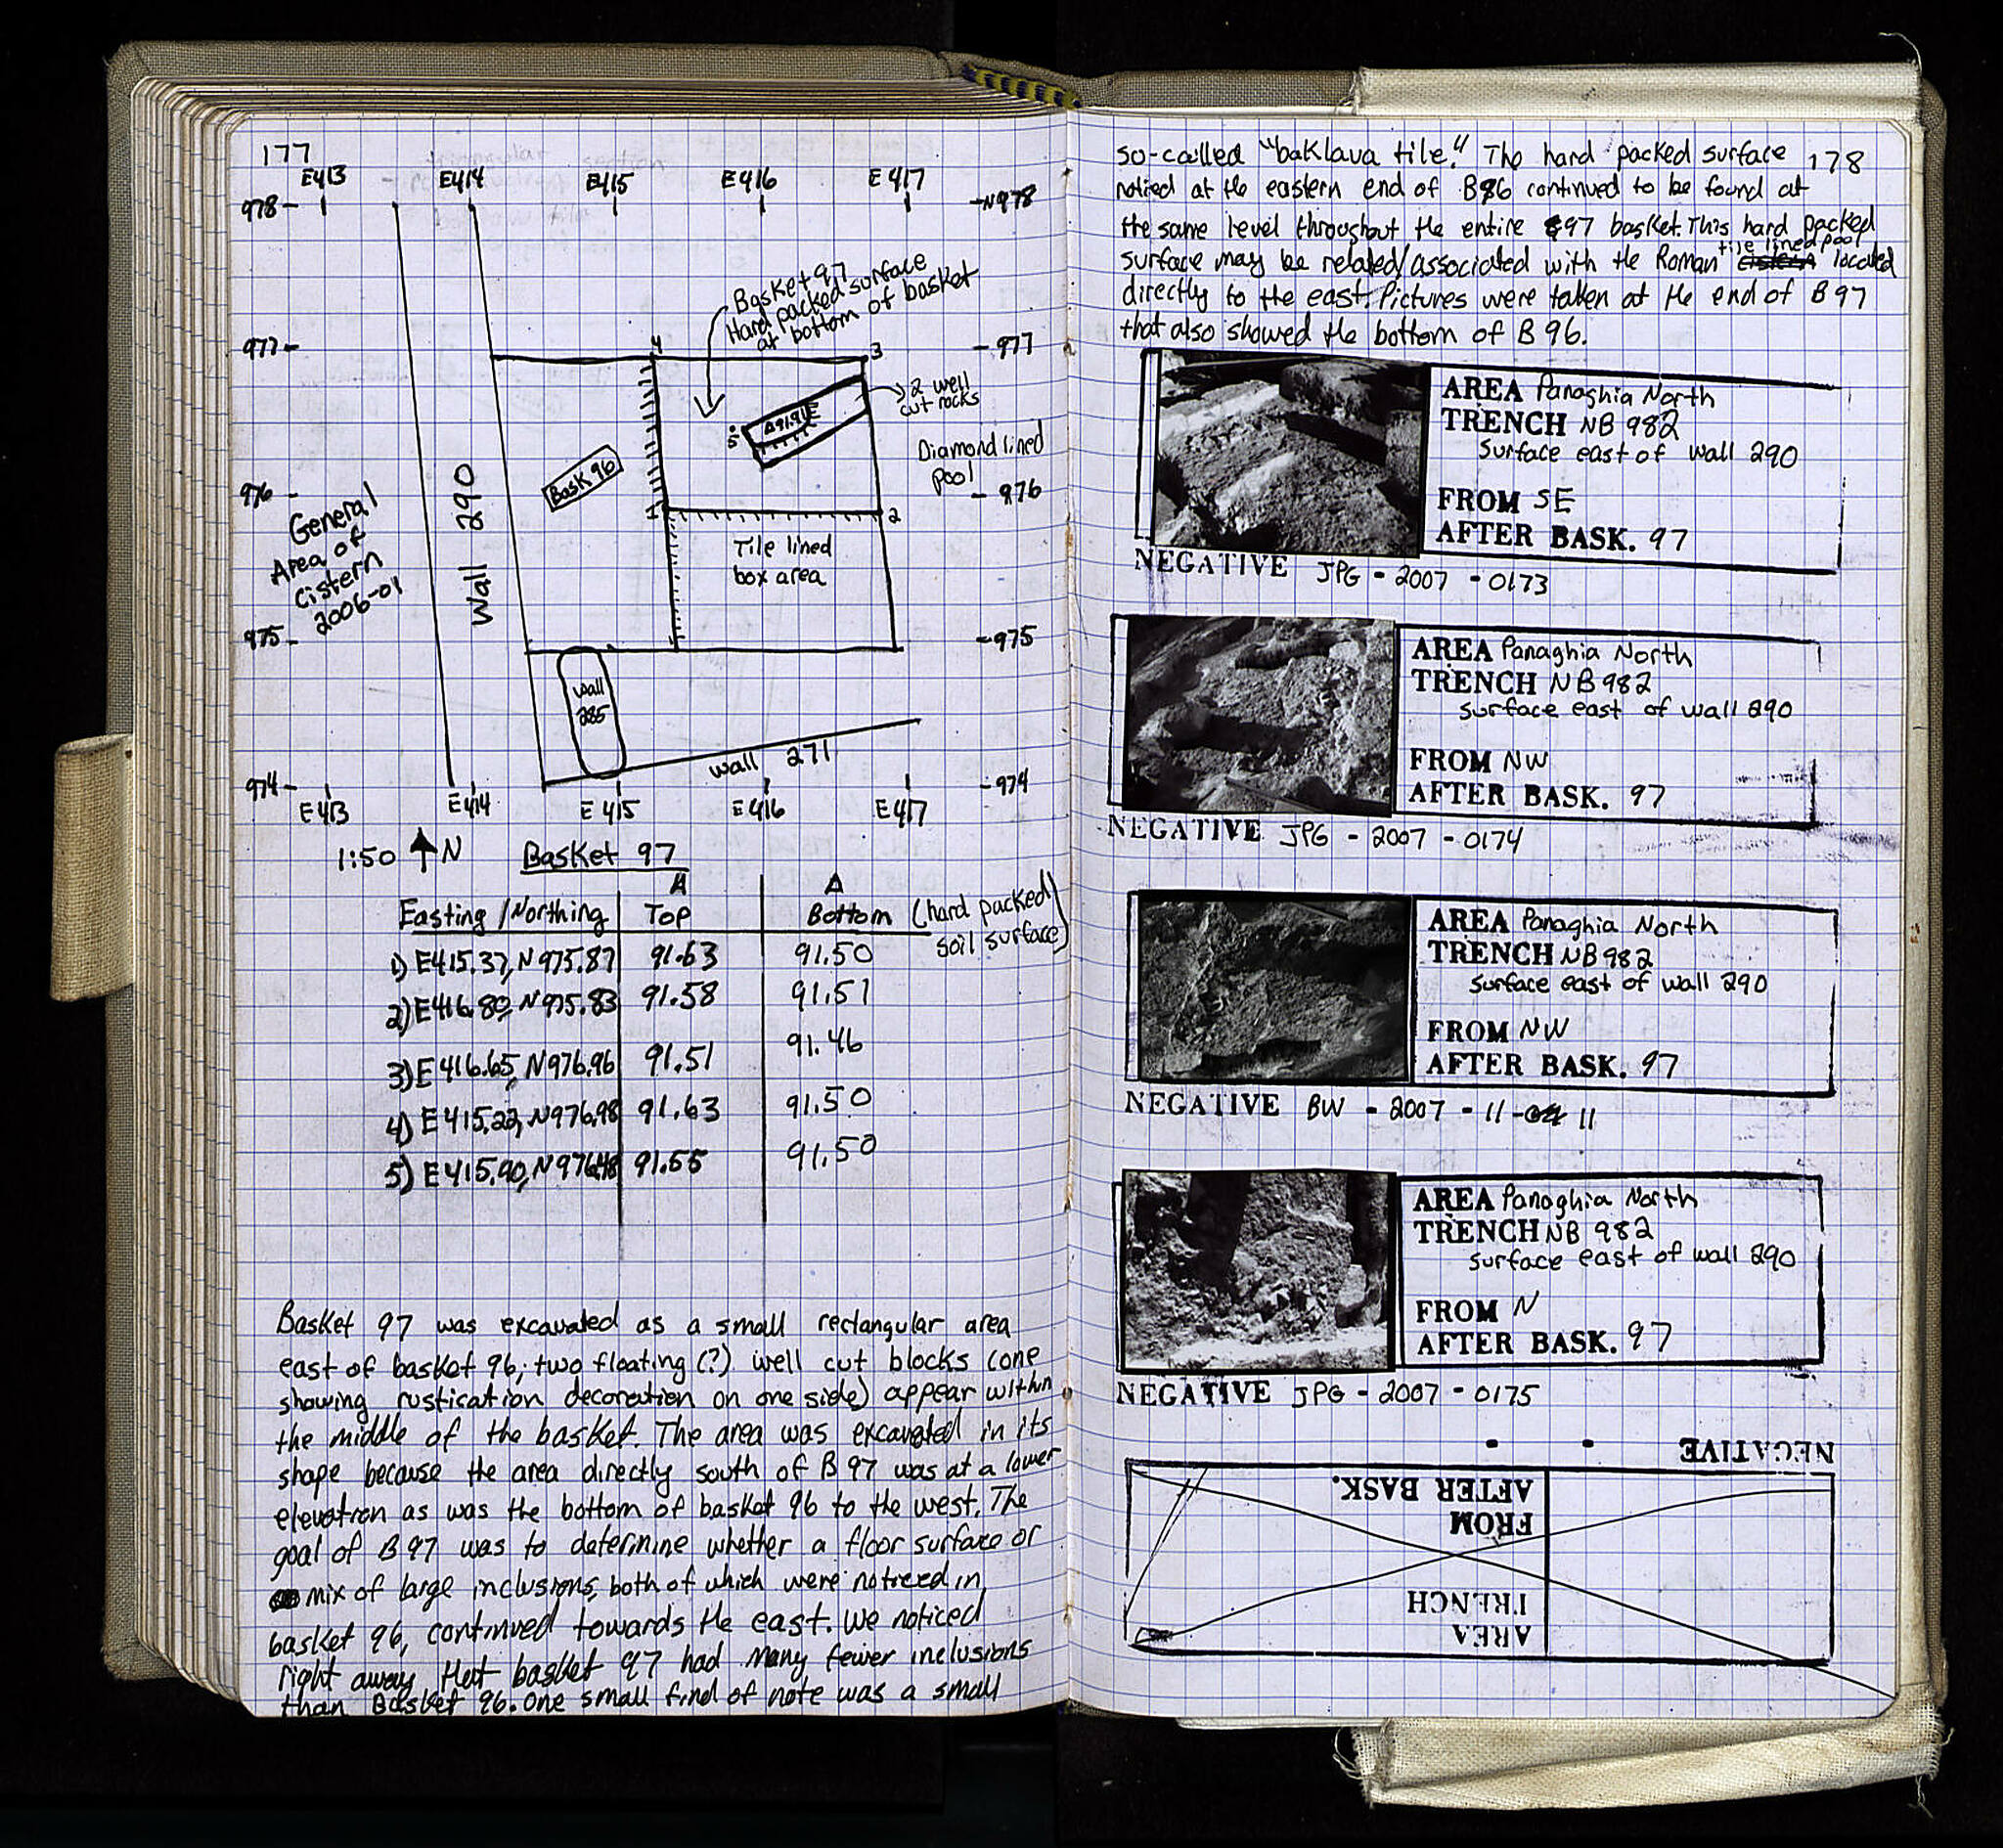 177
E413 E414 E415 E416 E417
978 N978
Basket 97
Hard packed surface
at bottom of basket
977 977
4 3
2 well
cut rocks
5
Diamond lined
pool
Bask 96
976 976
1 2
General
Area of
Cistern
2006-01
Wall 290
Tile lined
box area
975 975
Wall
285
wall 271
974 974
E413 E414 E415 E416 E417
1:50 N Basket 97
Easting/Northing Top Bottom (hard packed
soil surface)
1) E415.37, N975.87 91.63 91.50
2) E416.80, N975.83 91.58 91.51
3) E416.65, N976.96 91.51 91.46
4) E415.22, N976.98 91.63 91.50
5) E415.90, N976.48 91.55 91.50
Basket 97 was excavated as a small rectangular area
east of basket 96; two floating (?) well cut blocks (one
showing rustication decoration on one side) appear within
the middle of the basket. The area was excavated in its
shape because the area directly south of B97 was at a lower
elevation as was the bottom of basket 96 to the west. The
goal of B97 was to determine whether a floor surface or
mix of large inclusions, both of which were noticed in
basket 96, continued towards the east. We noticed
right away that basket 97 had many fewer inclusions
than Basket 96. One small find of note was a small
so-called "baklava tile." The hard packed surface 178
noticed at the eastern end of B96 continued to be found at
the same level throughout the entire 97 basket. This hard packed
surface may be related/associated with the Roman tile lined pool located
directly to the east. Pictures were taken at the end of B97
that also showed the bottom of B96.
AREA Panaghia North
TRENCH NB 982
surface east of wall 290
FROM SE
AFTER BASK. 97
NEGATIVE JPG - 2007 - 0173
AREA Panaghia North
TRENCH NB 982
surface east of wall 290
FROM NW
AFTER BASK. 97
NEGATIVE JPG - 2007 - 0174
AREA Panaghia North
TRENCH NB 982
surface east of wall 290
FROM NW
AFTER BASK. 97
NEGATIVE BW - 2007 - 11 - 11
AREA Panaghia North
TRENCH NB 982
surface east of wall 290
FROM N
AFTER BASK. 97
NEGATIVE JPG - 2007 - 0175
NEGATIVE
AFTER BASK.
FROM
TRENCH
AREA